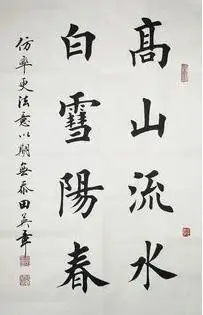 高山流水
白雪陽春
仿率更法意以期無忝田英章